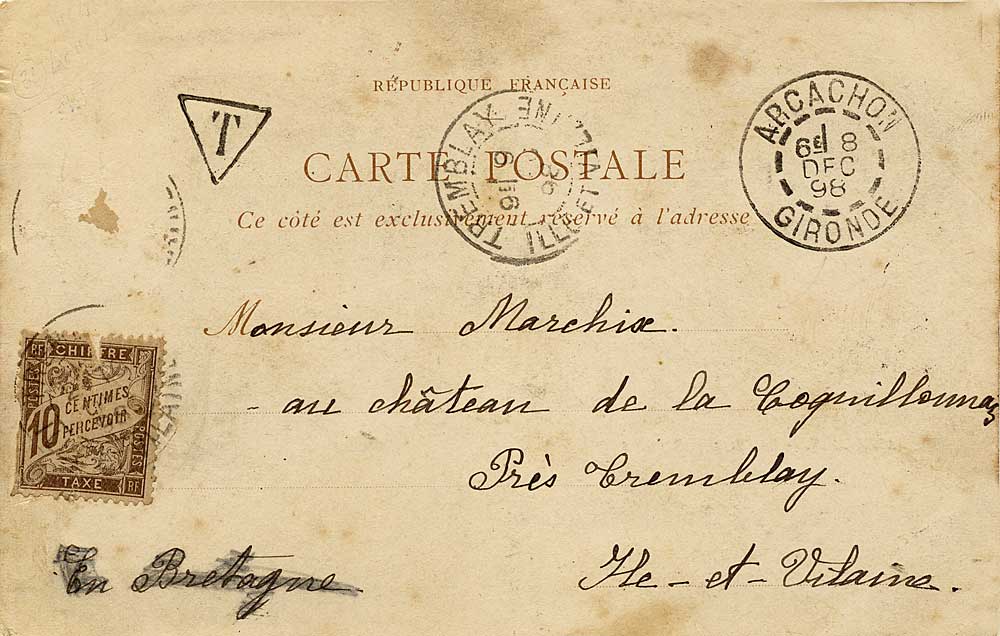 RÉPUBLIQUE FRANÇAISE
T
CARTE POSTALE
Ce côté est exclusivement réservé à l'adresse
TREMBLAY
ILLE ET VILAINE
ARCACHON
6E 8
DEC
98
GIRONDE
Monsieur Marchix.
au château de la
Près Tremblay.
Ile-et-Vilaine.
En Bretagne
RF CHIFFRE RF
POSTES
10 CENTIMES
PERCEVOIR
POSTES
TAXE RF
LAINE